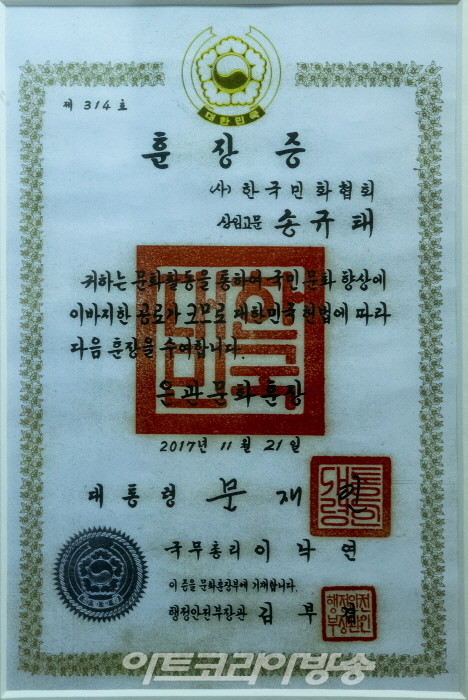 대한민국
제 314 호
훈장증
(사) 한국민화협회
상임고문 송규태
귀하는 문화활동을 통하여 국민 문화 향상에
이바지한 공로가 크므로 대한민국 헌법에 따라
다음 훈장을 수여합니다.
대한민국
은관문화훈장
2017년 11월 21일
대통령 문재인
국무총리 이낙연
이 증을 문화훈장부에 기재합니다.
행정안전부장관 김부겸
행정안전부장관인
아트코리아방송